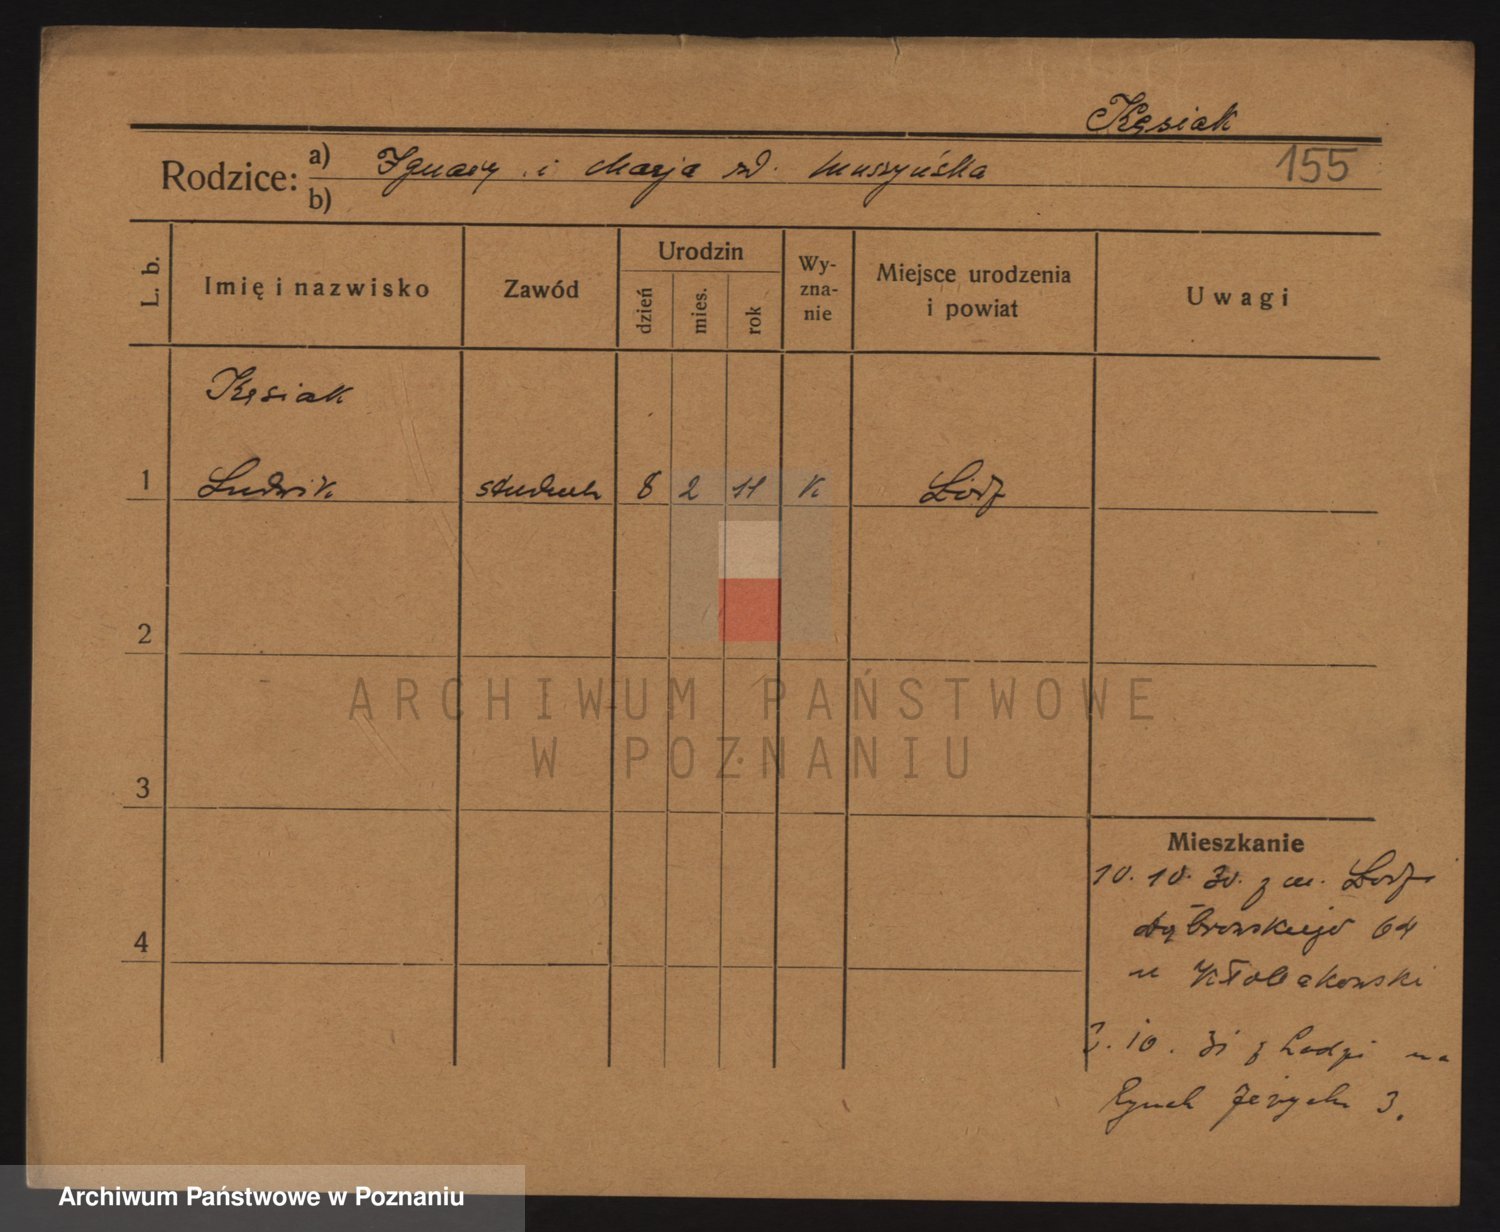 Kęsiak
155
Rodzice: a) Ignacy i Marja zd. Muszyńska
b)
L. b.
Imię i nazwisko
Zawód
Urodzin
dzień
mies.
rok
Wy-
zna-
nie
Miejsce urodzenia
i powiat
Uwagi
Kęsiak
1 Ludwik student 8 2 11 k Łódź
2
3
4
Mieszkanie
10. 10. 30. z m. Łodzi
Dąbrowskiego 64
u Kłobakowski
3. 10. 31 z Łodzi na
Rynek Jeżycki 3.
ARCHIWUM PAŃSTWOWE
W POZNANIU
Archiwum Państwowe w Poznaniu